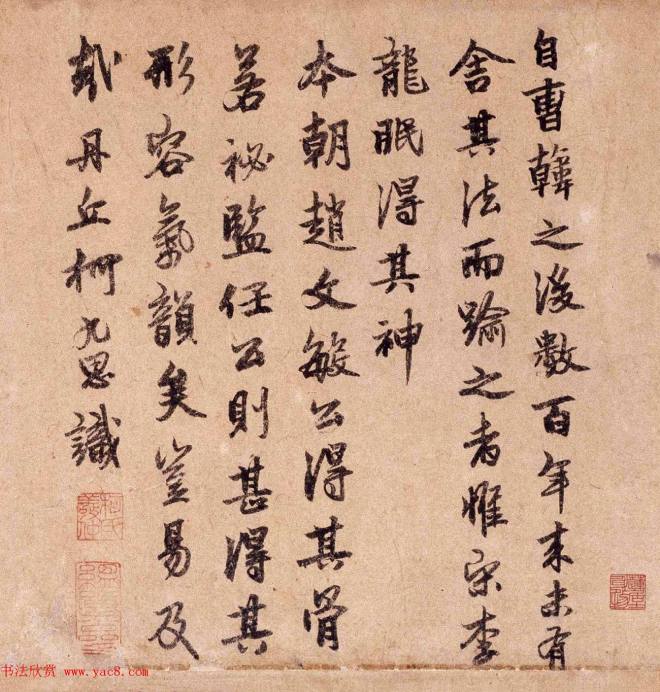 自曹韓之後數百年來未有
舍其法而踰之者惟宋李
龍眠得其神
本朝趙文敏公得其骨
若祕監任公則甚得其
形容氣韻矣豈易及
哉丹丘柯九思識
书法欣赏 www.yac8.com